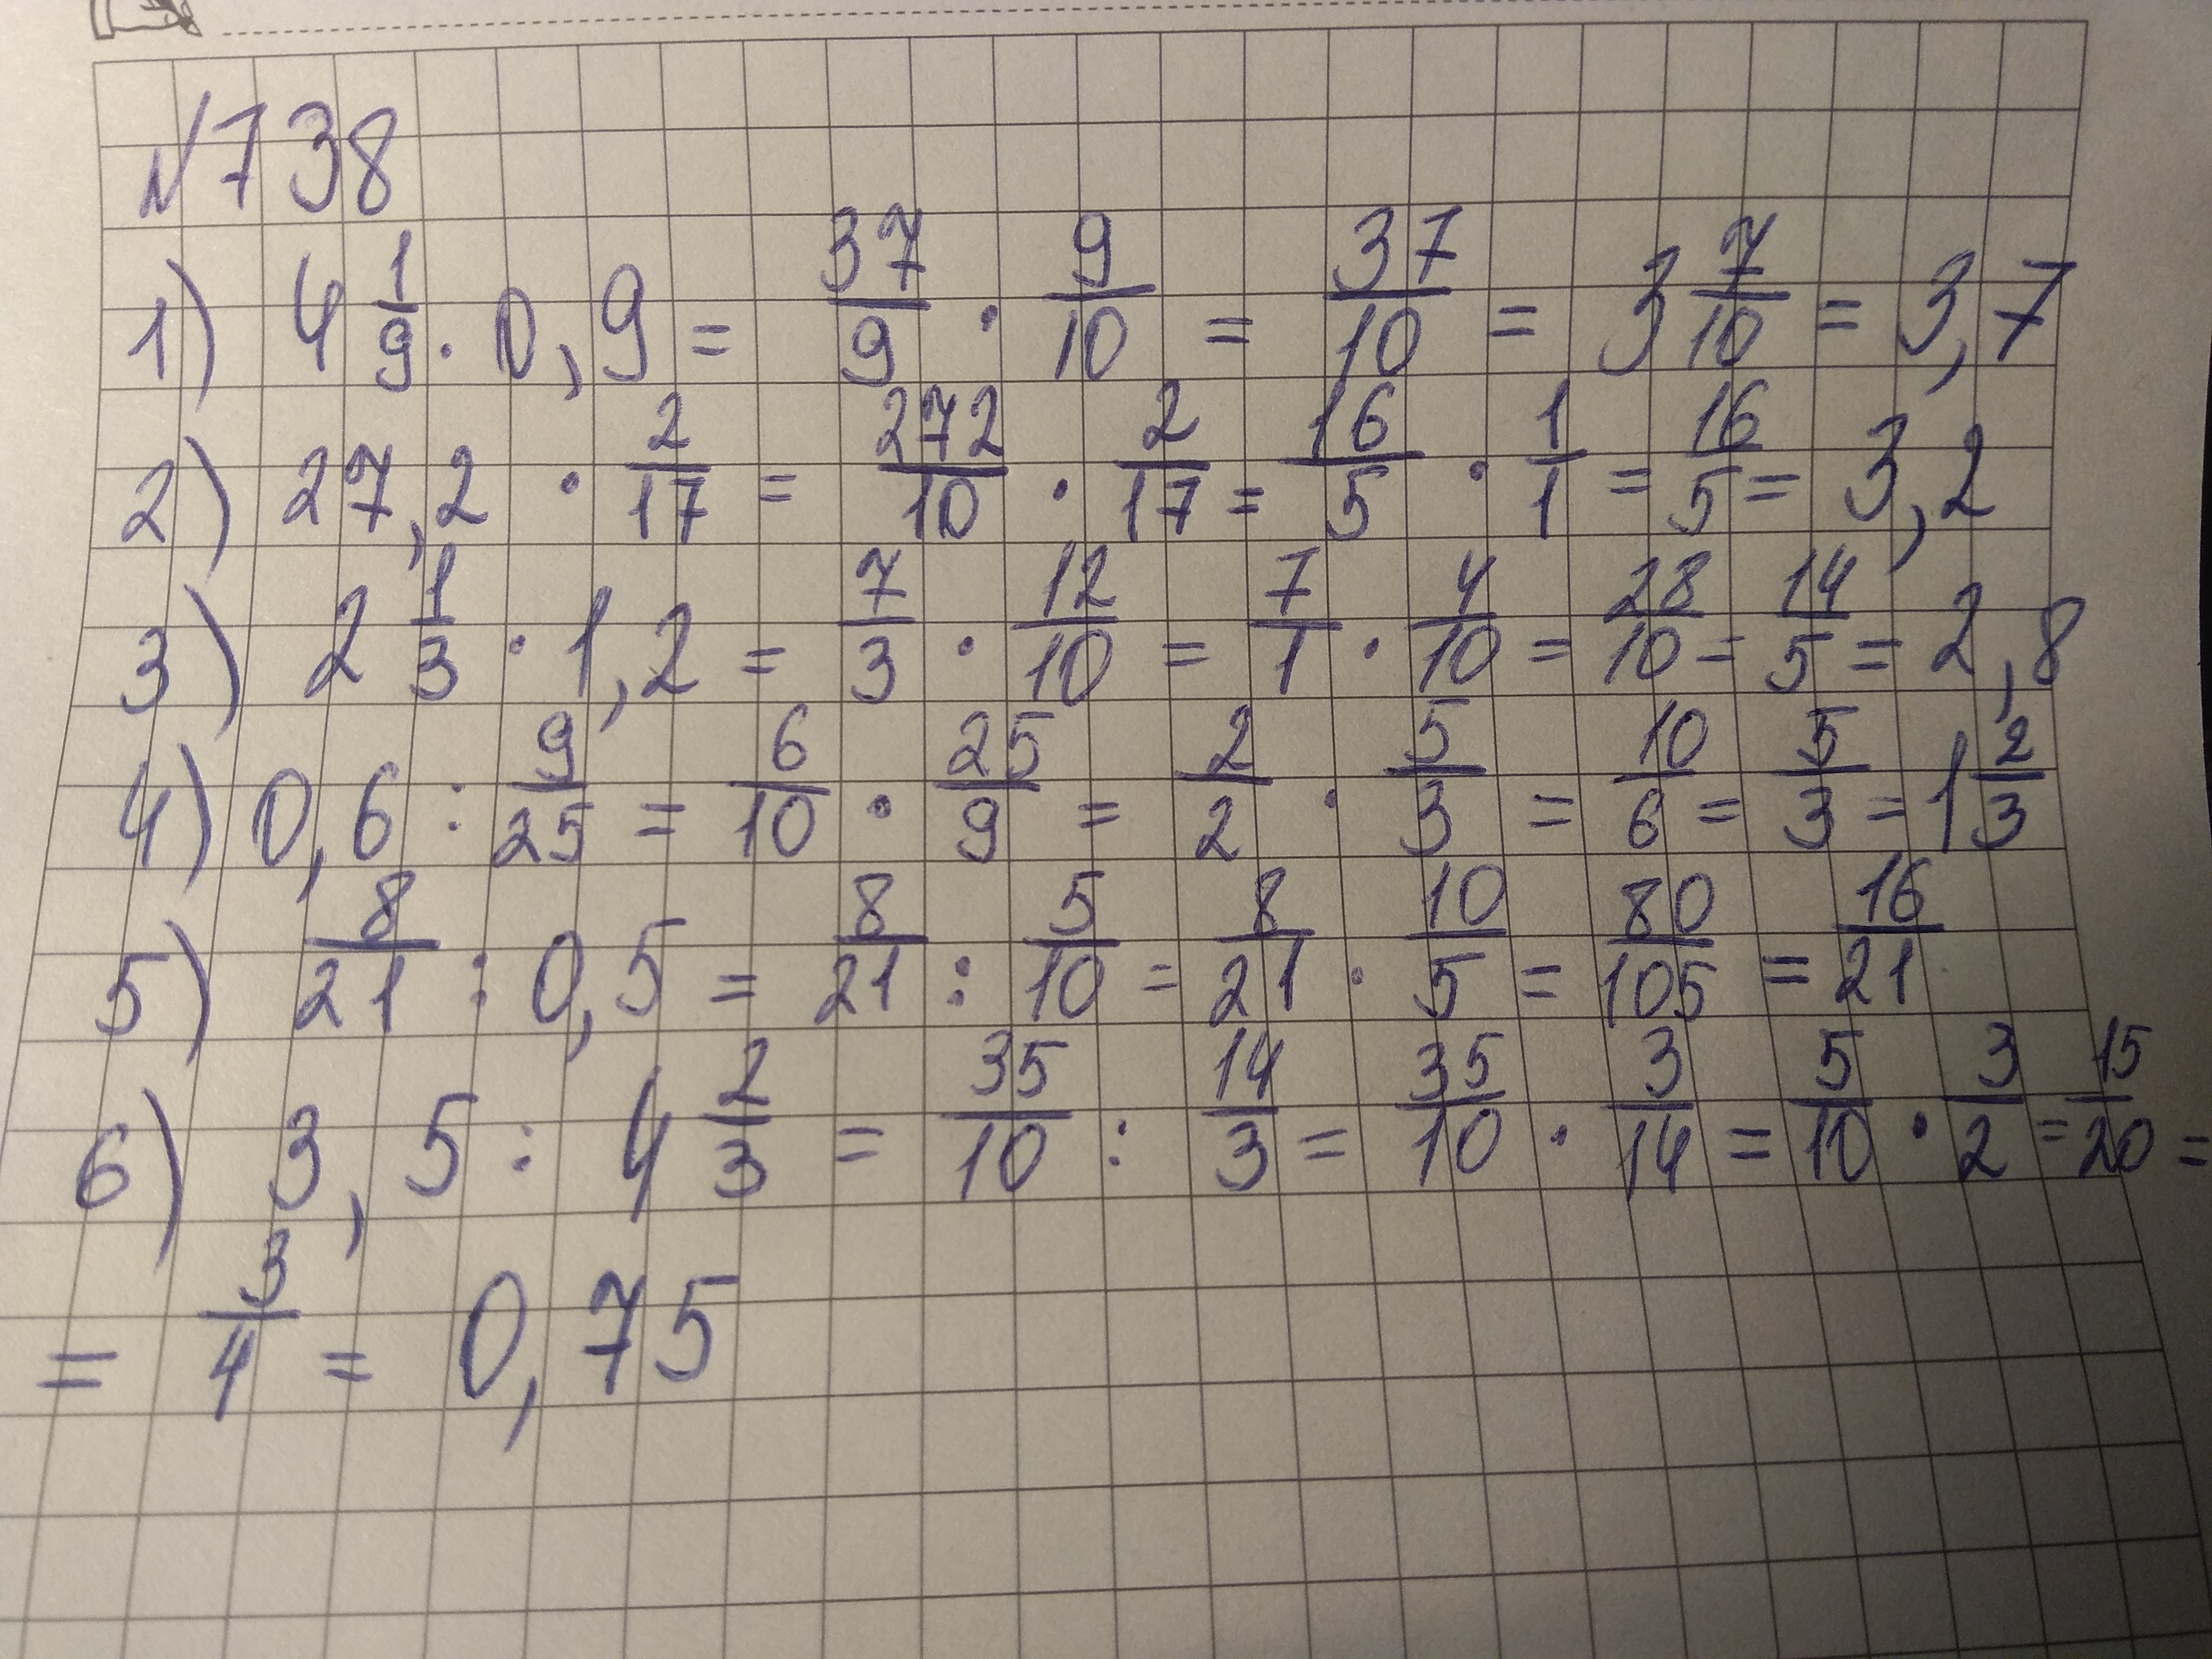 №738
1) 4 1/9 · 0,9 = 37/9 · 9/10 = 37/10 = 3 7/10 = 3,7
2) 27,2 · 2/17 = 272/10 · 2/17 = 16/5 · 1/1 = 16/5 = 3,2
3) 2 1/3 · 1,2 = 7/3 · 12/10 = 7/1 · 4/10 = 28/10 = 14/5 = 2,8
4) 0,6 : 9/25 = 6/10 · 25/9 = 2/2 · 5/3 = 10/6 = 5/3 = 1 2/3
5) 8/21 : 0,5 = 8/21 : 5/10 = 8/21 · 10/5 = 80/105 = 16/21
6) 3,5 : 4 2/3 = 35/10 : 14/3 = 35/10 · 3/14 = 5/10 · 3/2 = 15/20 =
= 3/4 = 0,75